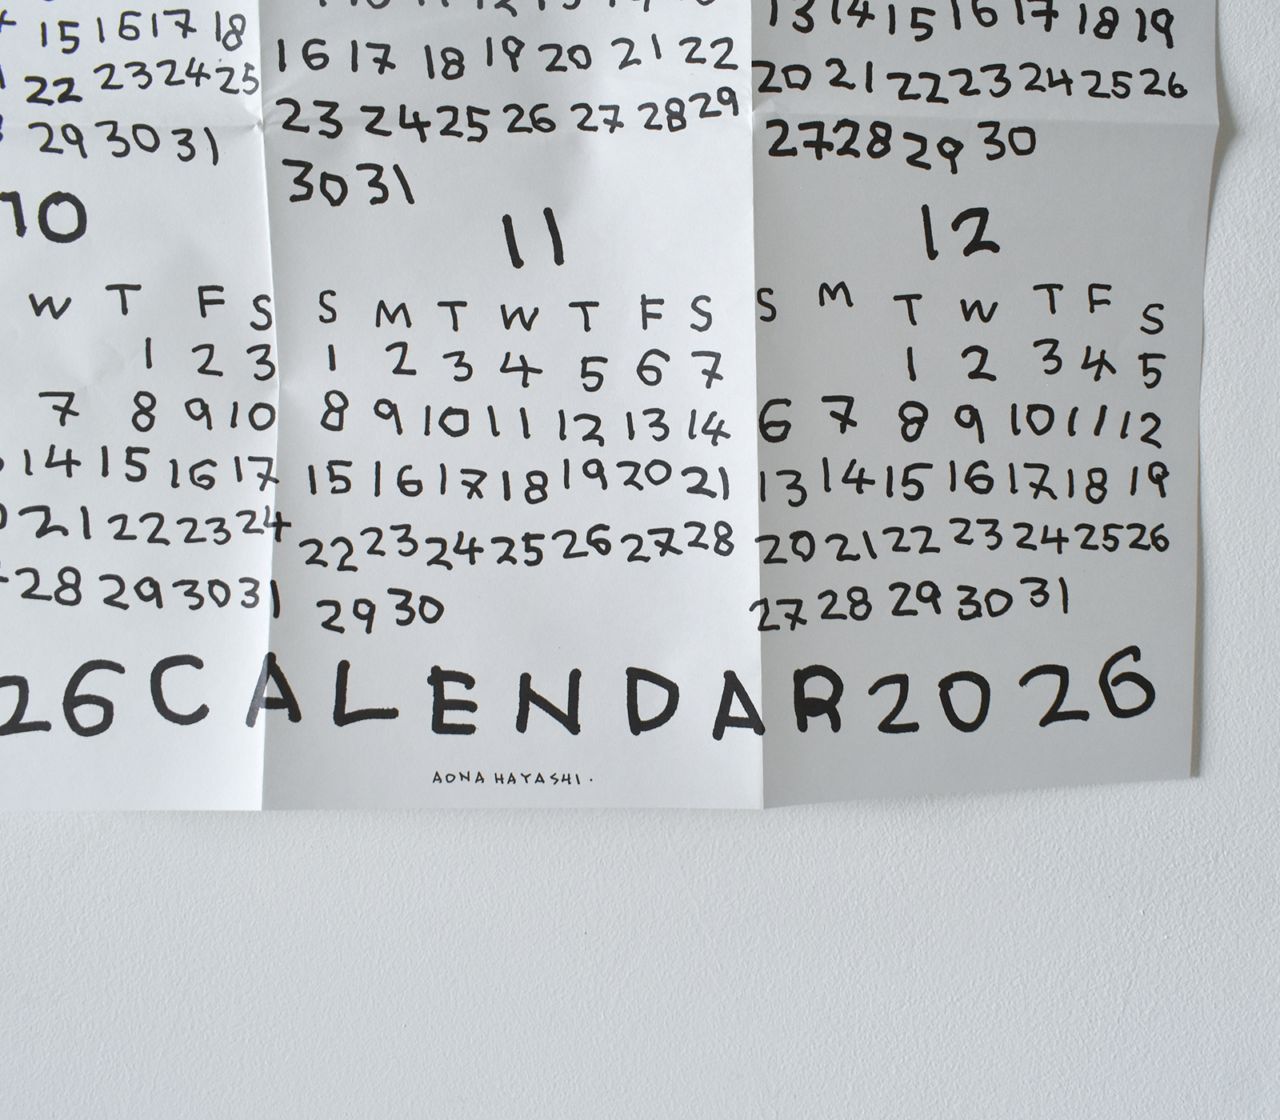 15 16 17 18
22 23 24 25
29 30 31
16 17 18 19 20 21 22
23 24 25 26 27 28 29
30 31
13 14 15 16 17 18 19
20 21 22 23 24 25 26
27 28 29 30
10
W T F S
1 2 3
7 8 9 10
14 15 16 17
21 22 23 24
28 29 30 31
11
S M T W T F S
1 2 3 4 5 6 7
8 9 10 11 12 13 14
15 16 17 18 19 20 21
22 23 24 25 26 27 28
29 30
12
S M T W T F S
1 2 3 4 5
6 7 8 9 10 11 12
13 14 15 16 17 18 19
20 21 22 23 24 25 26
27 28 29 30 31
26 CALENDAR 2026
AONA HAYASHI.